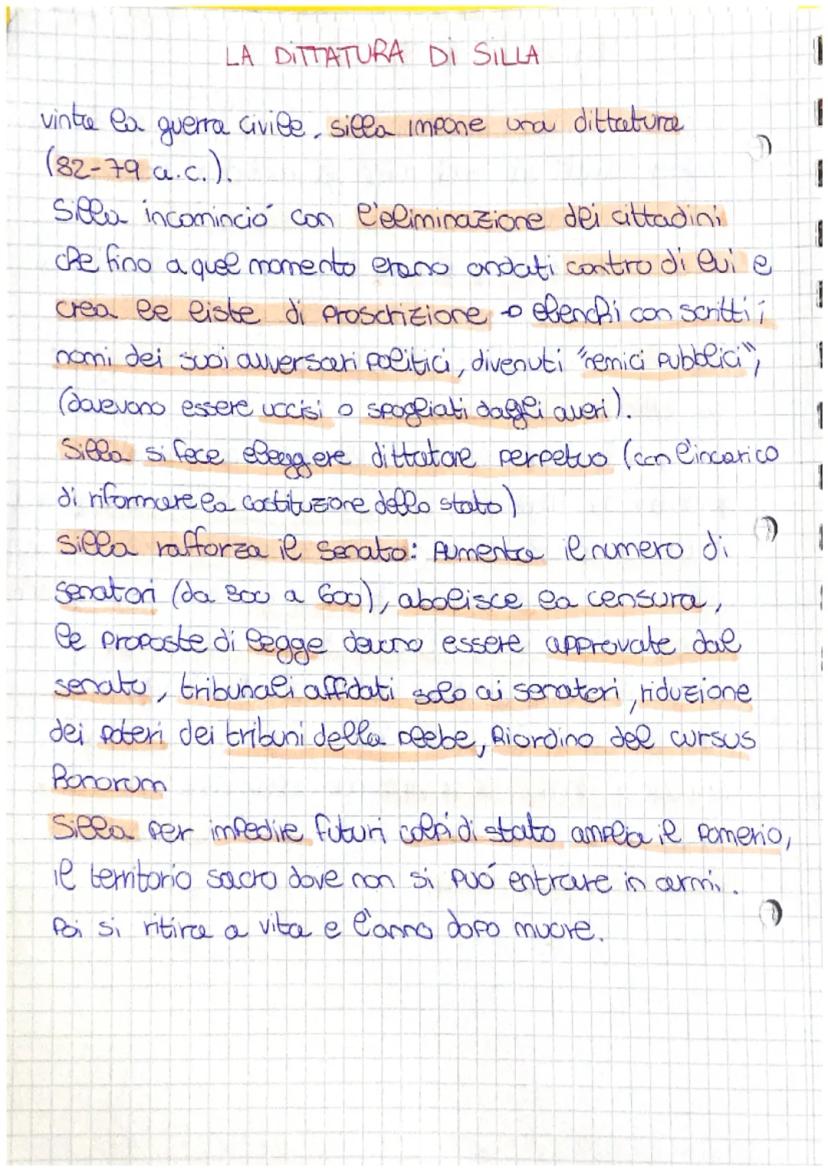 LA DITTATURA DI SILLA
vinta la guerra civile, silla impone una dittatura
(82-79 a.c.).
Silla incominció con l'eliminazione dei cittadini
che fino a quel momento erano andati contro di lui e
crea le liste di proscrizione → elenchi con scritti i
nomi dei suoi avversari politici, divenuti "nemici pubblici",
(dovevano essere uccisi o spogliati dagli averi).
Silla si fece eleggere dittatore perpetuo (con l'incarico
di riformare la costituzione dello stato)
Silla rafforza il senato: Aumenta il numero di
senatori (da 300 a 600), abolisce la censura,
le proposte di legge devono essere approvate dal
senato, tribunali affidati solo ai senatori, riduzione
dei poteri dei tribuni della plebe, Riordino del cursus
honorum
Silla per impedire futuri colpi di stato amplia il pomerio,
il territorio sacro dove non si puó entrare in armi.
Poi si ritira a vita e l'anno dopo muore.